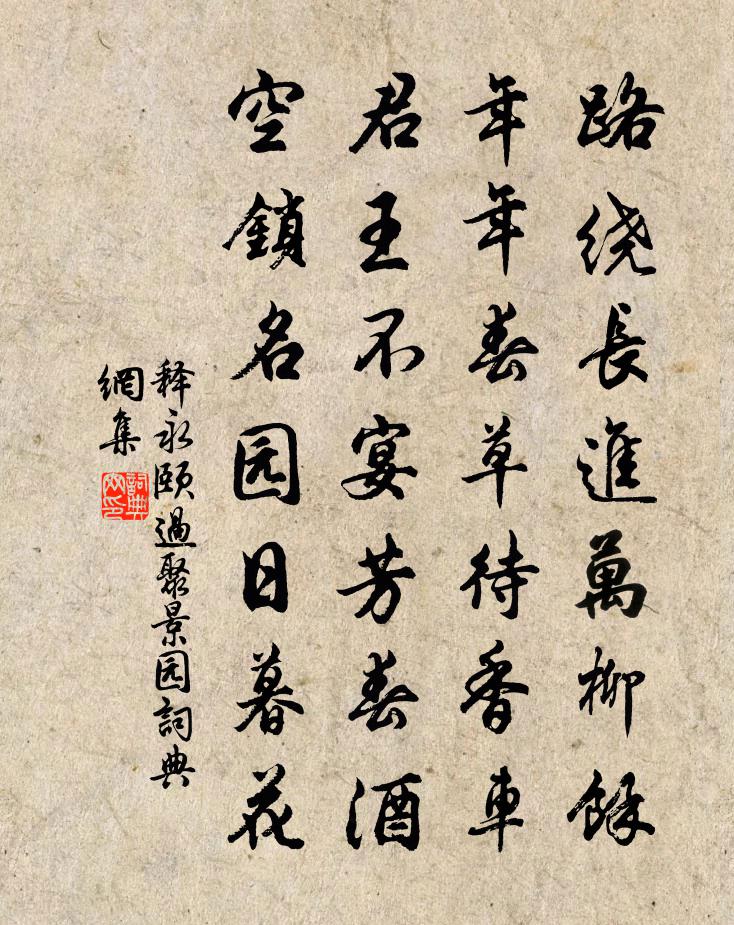 路绕長進萬柳餘
年年春草待香車
君王不宴芳春酒
空鎖名园日暮花
释永颐過聚景园詞典
網集
詞典
网印